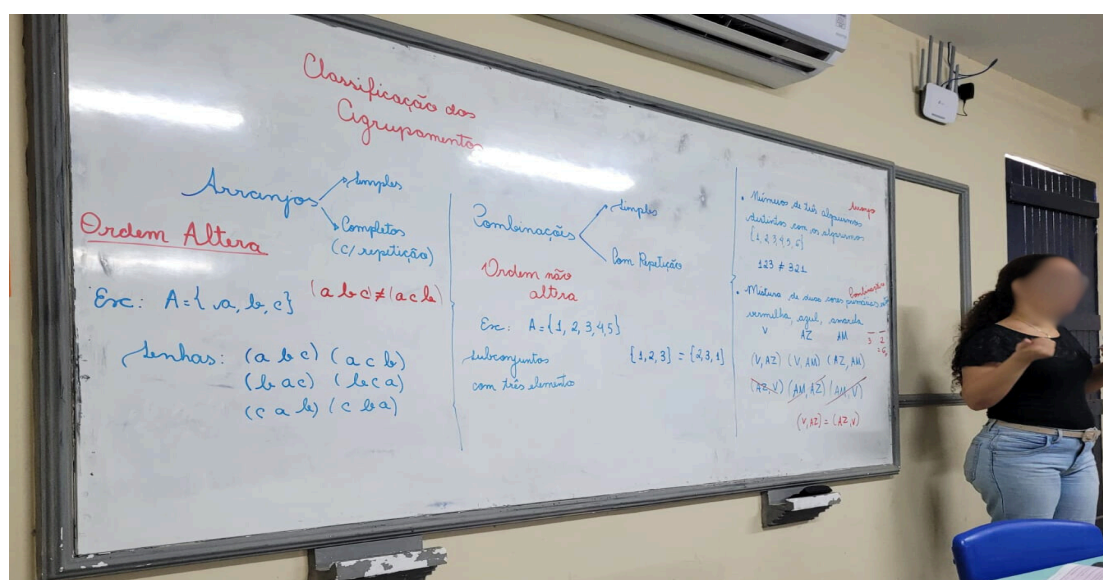 Classificação dos
Agrupamentos
Arranjos
simples
Completos
(c/ repetição)
Ordem Altera
Ex: A={a, b, c} (a b c) ≠ (a c b)
senhas: (a b c) (a c b)
(b a c) (b c a)
(c a b) (c b a)
Combinações
simples
Com Repetição
Ordem não
altera
Ex: A={1, 2, 3, 4, 5}
subconjuntos
com três elemento
{1,2,3} = {2,3,1}
• Números de três algarismos Arranjo
distintos com os algarismos
{1,2,3,4,5,6}
123 ≠ 321
Combinações
• Mistura de duas cores primárias
vermelha, azul, amarela
V AZ AM
3 2
= 6
(V, AZ) (V, AM) (AZ, AM)
(AZ, V) (AM, AZ) (AM, V)
(V, AZ) = (AZ, V)